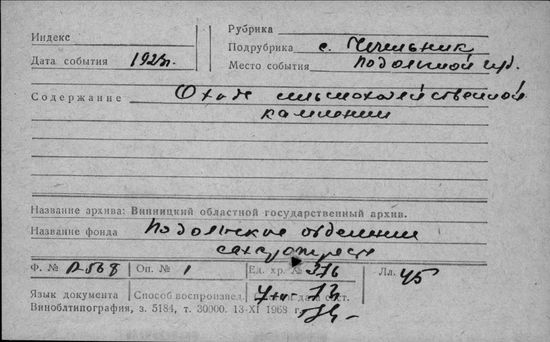 Индекс
Рубрика
Подрубрика с. Чечельник
Дата события 1923г.
Место события Подольской губ.
Содержание О ходе сельскохозяйственной
кампании
Название архива: Винницкий областной государственный архив.
Название фонда Подольское отделение
сахаротреста
Ф. № Р-568 Оп. № 1 Ед. хр. № 376 Лл. 45
Язык документа Способ воспроизвед. дата сост.
Виноблтипография, з. 5184, т. 30000. 13-XI 1968 г.